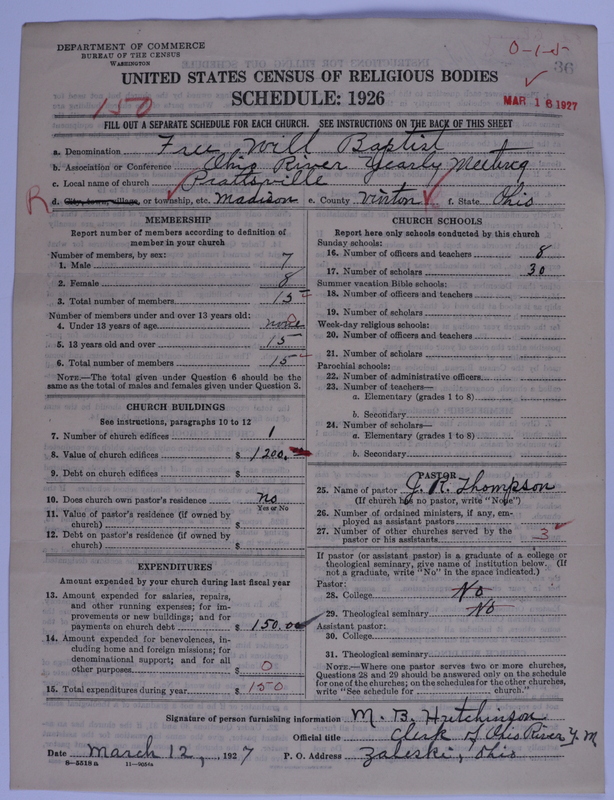 DEPARTMENT OF COMMERCE
BUREAU OF THE CENSUS
WASHINGTON
0-1-5
36
UNITED STATES CENSUS OF RELIGIOUS BODIES
SCHEDULE: 1926
150
MAR 16 1927
FILL OUT A SEPARATE SCHEDULE FOR EACH CHURCH. SEE INSTRUCTIONS ON THE BACK OF THIS SHEET
a. Denomination Free Will Baptist
b. Association or Conference Ohio River Yearly Meeting
c. Local name of church Prattsville
R d. City, town, village, or township, etc. Madison e. County Vinton f. State Ohio
MEMBERSHIP
Report number of members according to definition of
member in your church
Number of members, by sex:
1. Male 7
2. Female 8
3. Total number of members 15
Number of members under and over 13 years old:
4. Under 13 years of age none
5. 13 years old and over 15
6. Total number of members 15
NOTE.—The total given under Question 6 should be the
same as the total of males and females given under Question 3.
CHURCH BUILDINGS
See instructions, paragraphs 10 to 12
7. Number of church edifices 1
8. Value of church edifices $ 1200.
9. Debt on church edifices $
10. Does church own pastor's residence No
Yes or No
11. Value of pastor's residence (if owned by
church) $
12. Debt on pastor's residence (if owned by
church) $
EXPENDITURES
Amount expended by your church during last fiscal year
13. Amount expended for salaries, repairs,
and other running expenses; for im-
provements or new buildings; and for
payments on church debt $ 150.00
14. Amount expended for benevolences, in-
cluding home and foreign missions; for
denominational support; and for all
other purposes $ 0
15. Total expenditures during year $ 150
CHURCH SCHOOLS
Report here only schools conducted by this church
Sunday schools:
16. Number of officers and teachers 8
17. Number of scholars 30
Summer vacation Bible schools:
18. Number of officers and teachers
19. Number of scholars
Week-day religious schools:
20. Number of officers and teachers
21. Number of scholars
Parochial schools:
22. Number of administrative officers
23. Number of teachers—
a. Elementary (grades 1 to 8)
b. Secondary
24. Number of scholars—
a. Elementary (grades 1 to 8)
b. Secondary
PASTOR
25. Name of pastor J. R. Thompson
(If church has no pastor, write "None")
26. Number of ordained ministers, if any, em-
ployed as assistant pastors
27. Number of other churches served by the
pastor or his assistants 3
If pastor (or assistant pastor) is a graduate of a college or
theological seminary, give name of institution below. (If
not a graduate, write "No" in the space indicated.)
Pastor:
28. College No
29. Theological seminary No
Assistant pastor:
30. College
31. Theological seminary
NOTE.—Where one pastor serves two or more churches,
Questions 28 and 29 should be answered only on the schedule
for one of the churches; on the schedules for the other churches,
write "See schedule for church."
Signature of person furnishing information M. B. Hutchinson
Official title Clerk of Ohio River Y. M
Date March 12, 1927 P. O. Address Zaleski, Ohio
8—5518a 11—9054a